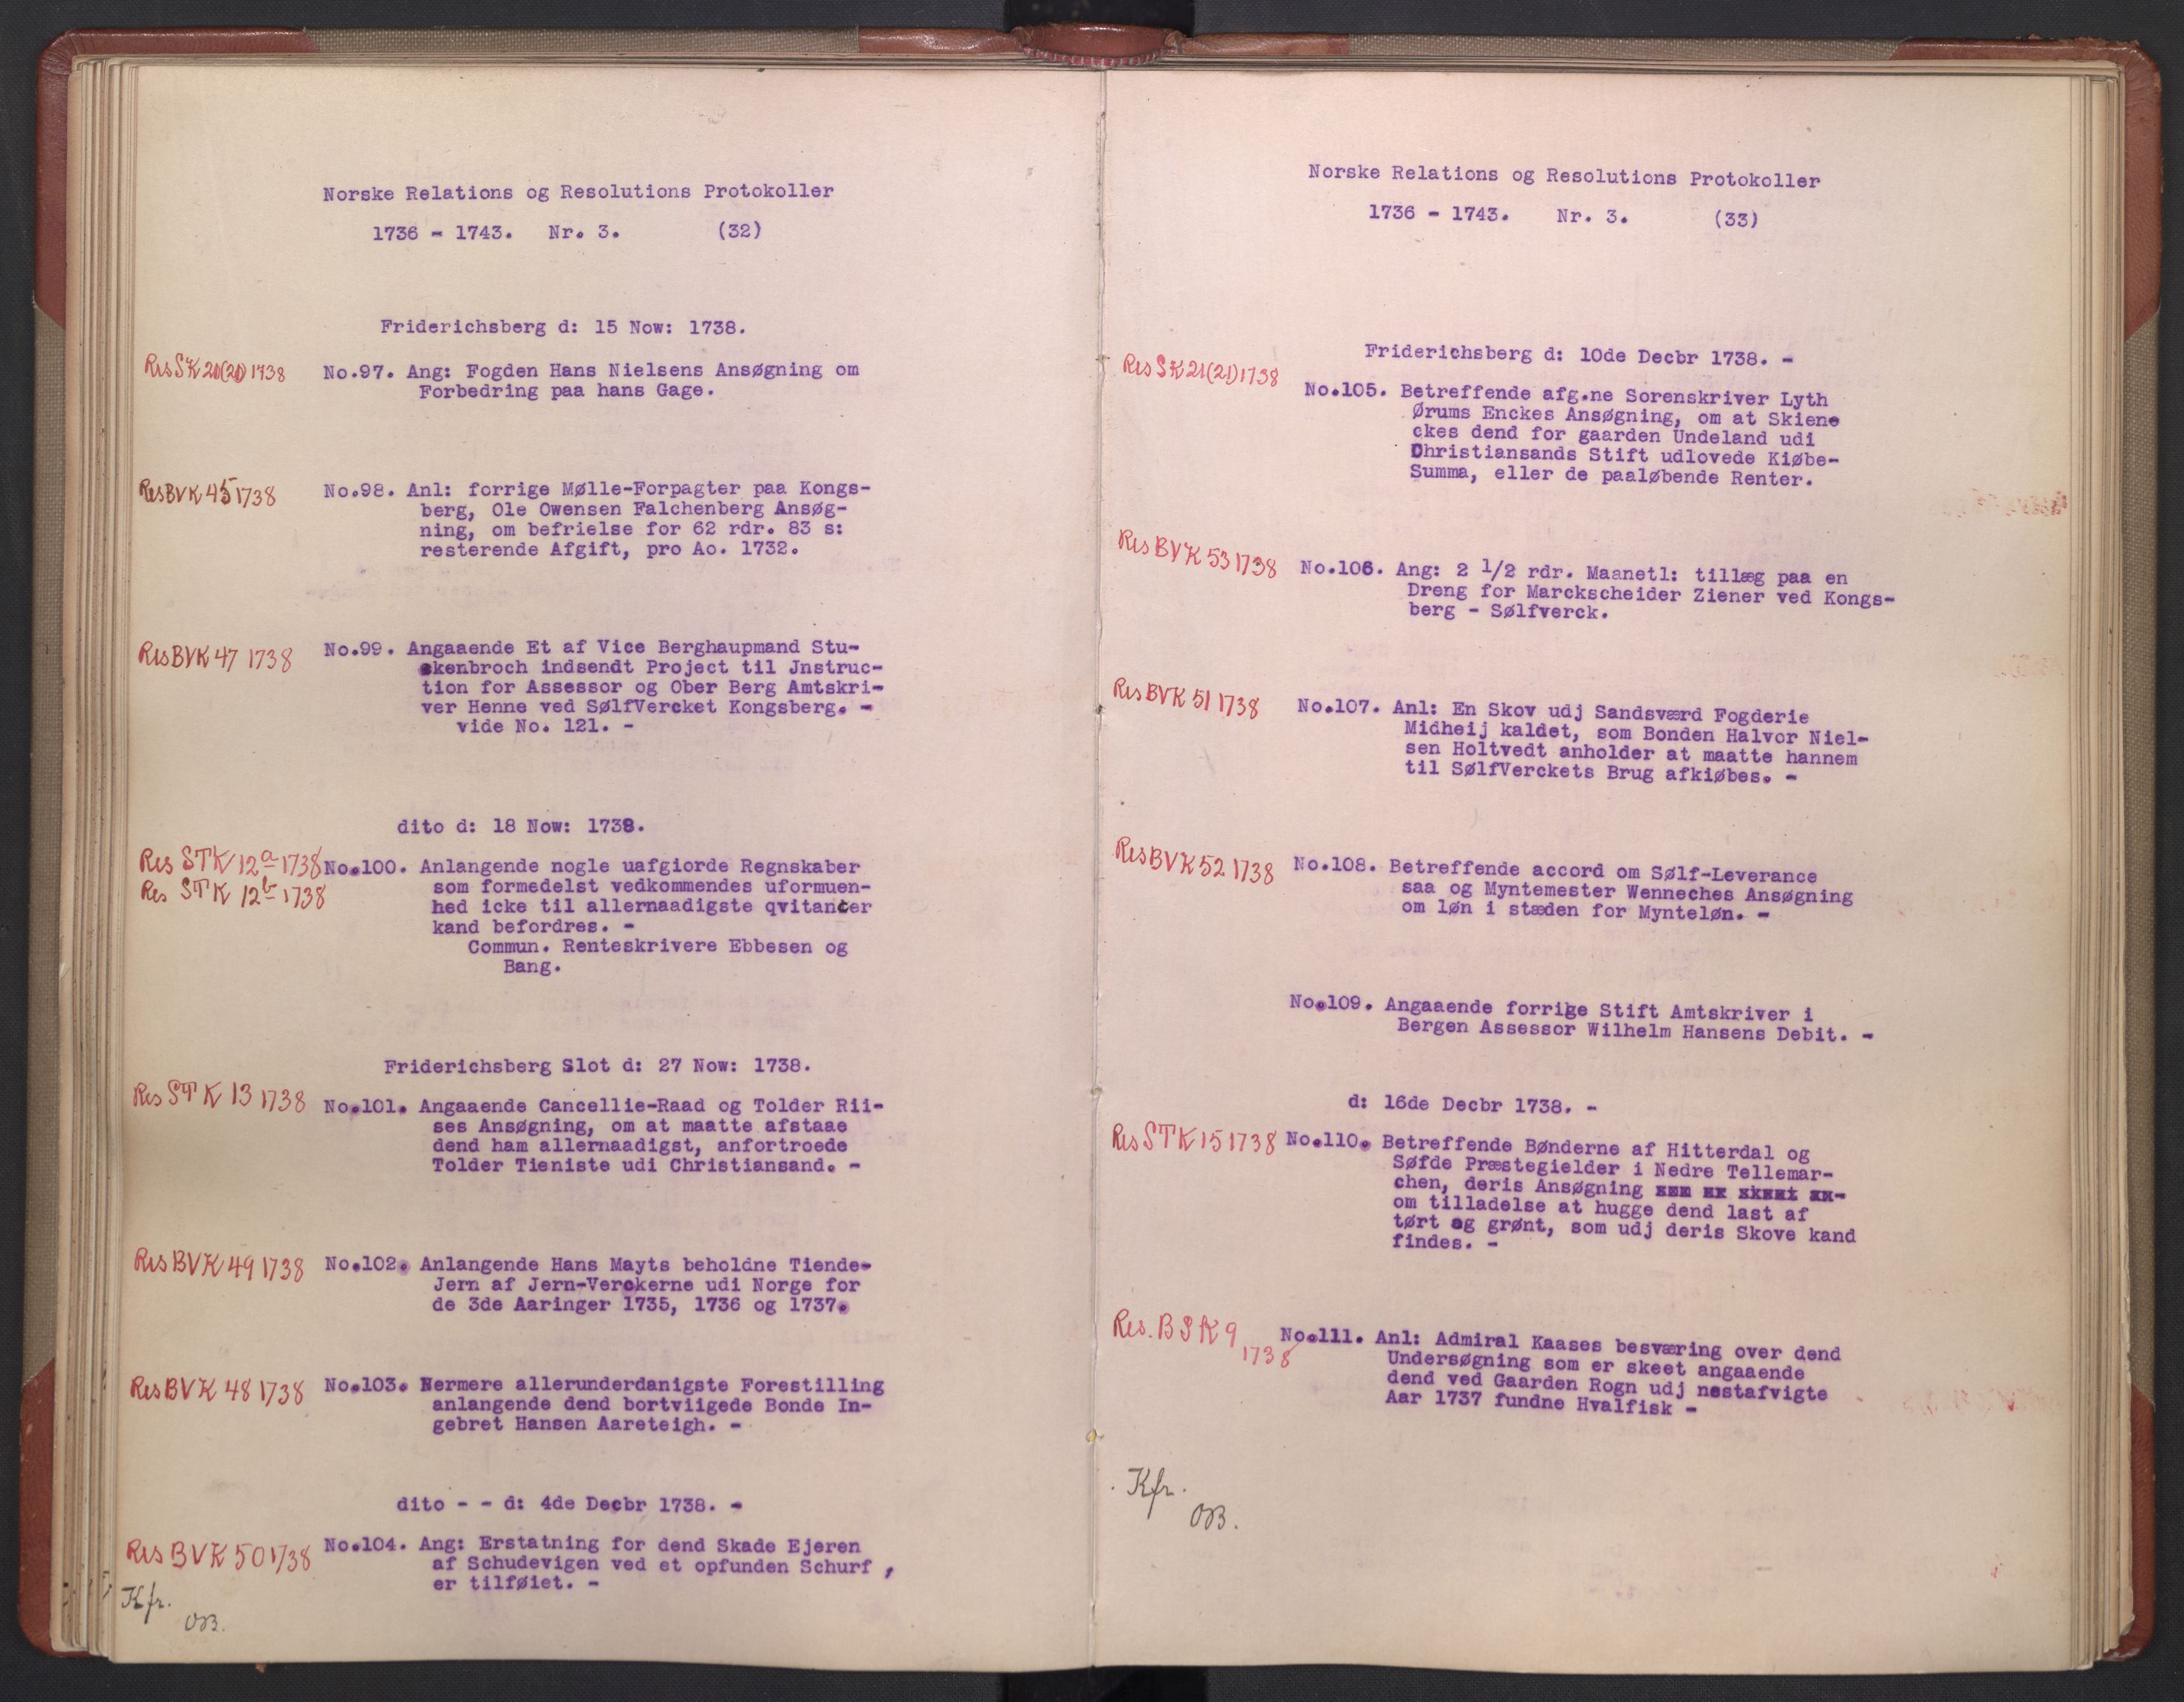 Norske Relations og Resolutions Protokoller
1736 - 1743. Nr. 3. (32)
Friderichsberg d: 15 Now: 1738.
Res SK 20(20) 1738
No.97. Ang: Fogden Hans Nielsens Ansøgning om
Forbedring paa hans Gage.
Res BVK 45 1738
No.98. Anl: forrige Mølle-Forpagter paa Kongs-
berg, Ole Owensen Falchenberg Ansøg-
ning, om befrielse for 62 rdr. 83 s:
resterende Afgift, pro Ao. 1732.
Res BVK 47 1738
No.99. Angaaende Et af Vice Berghaupmand Stu-
ckenbroch indsendt Project til Jnstruc-
tion for Assessor og Ober Berg Amtskri-
ver Henne ved SølfVercket Kongsberg. -
vide No. 121. -
dito d: 18 Now: 1738.
Res STK 12a 1738
Res STK 12b 1738
No.100. Anlangende nogle uafgiorde Regnskaber
som formedelst vedkommendes uformuen-
hed icke til allernaadigste qvitancer
kand befordres. -
Commun. Renteskrivere Ebbesen og
Bang.
Friderichsberg Slot d: 27 Now: 1738.
Res STK 13 1738
No.101. Angaaende Cancellie-Raad og Tolder Rii-
ses Ansøgning, om at maatte afstaae
dend ham allernaadigst, anfortroede
Tolder Tieniste udi Christiansand. -
Res BVK 49 1738
No.102. Anlangende Hans Mayts beholdne Tiende-
Jern af Jern-Verckerne udi Norge for
de 3de Aaringer 1735, 1736 og 1737.
Res BVK 48 1738
No.103. Nermere allerunderdanigste Forestilling
anlangende dend bortviigede Bonde In-
gebret Hansen Aareteigh. -
dito - - d: 4de Decbr 1738. -
Res BVK 50 1738
No.104. Ang: Erstatning for dend Skade Ejeren
af Schudevigen ved et opfunden Schurf ,
er tilføiet. -
Kfr.
OB.
Norske Relations og Resolutions Protokoller
1736 - 1743. Nr. 3. (33)
Friderichsberg d: 10de Decbr 1738. -
Res SK 21(21) 1738
No.105. Betreffende afg.ne Sorenskriver Lyth
Ørums Enckes Ansøgning, om at Skiene
ckes dend for gaarden Undeland udi
Christiansands Stift udlovede Kiøbe-
Summa, eller de paaløbende Renter.
Res BVK 53 1738
No.106. Ang: 2 1/2 rdr. Maanetl: tillæg paa en
Dreng for Marckscheider Ziener ved Kongs-
berg - Sølfverck.
Res BVK 51 1738
No.107. Anl: En Skov udj Sandsværd Fogderie
Midheij kaldet, som Bonden Halvor Niel-
sen Holtvedt anholder at maatte hannem
til SølfVerckets Brug afkiøbes. -
Res BVK 52 1738
No.108. Betreffende accord om Sølf-Leverance
saa og Myntemester Wenneches Ansøgning
om løn i stæden for Mynteløn. -
No.109. Angaaende forrige Stift Amtskriver i
Bergen Assessor Wilhelm Hansens Debit. -
d: 16de Decbr 1738. -
Res STK 15 1738
No.110. Betreffende Bønderne af Hitterdal og
Søfde Præstegielder i Nedre Tellemar-
chen, deris Ansøgning
om tilladelse at hugge dend last af
tørt og grønt, som udj deris Skove kand
findes. -
Res. BSK 9
1738
No.111. Anl: Admiral Kaases besværing over dend
Undersøgning som er skeet angaaende
dend ved Gaarden Rogn udj nestafvigte
Aar 1737 fundne Hvalfisk -
Kfr.
OB.